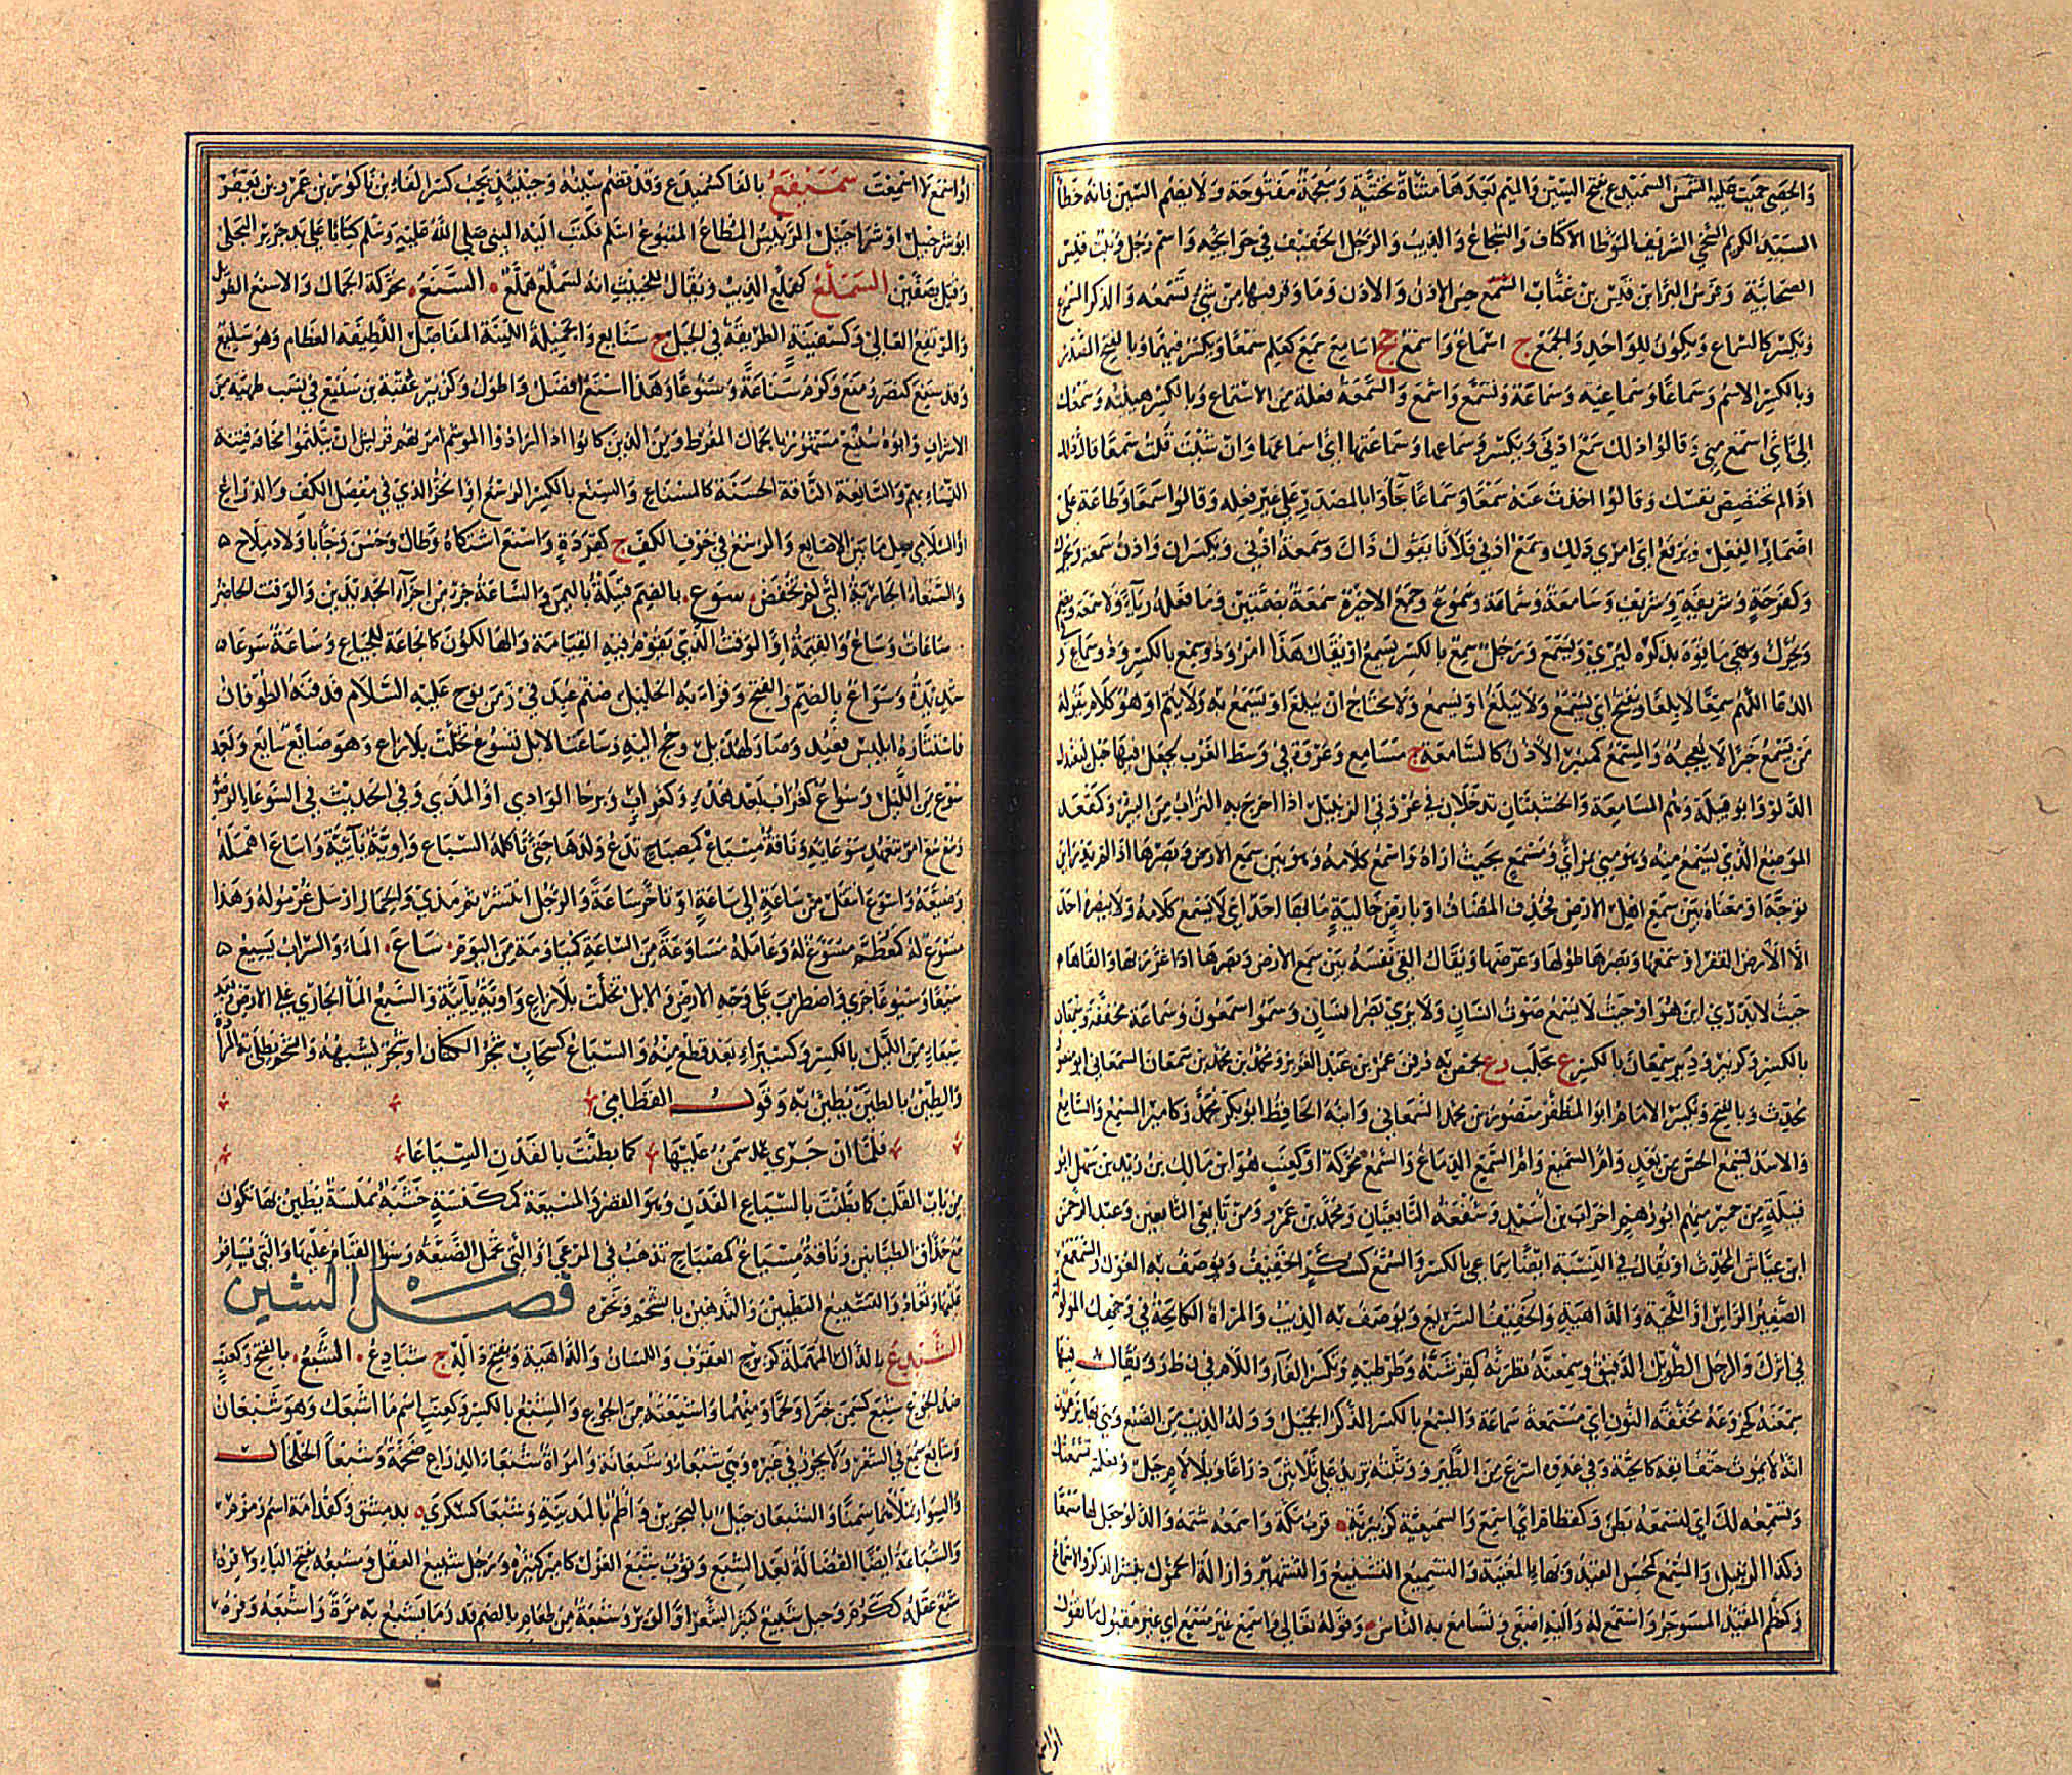 وَالحِصَى حَمِيَت عليه الشمس السَّمَيْدَع بفتح السين والميم بعدها مثناة تحتية ومعجمة مفتوحة ولا بضم السين فانه خطأ
السيد الكريم السخي الشريف الموطأ الاكناف والشجاع والذيب والرجل الخفيف في حوائجه واسم رجل وبنت قيس
الصحابية وفرس البراء بن قيس بن عتاب السمع حس الاذن والاذن وما وقر فيها من شيء تسمعه والذكر المسموع
ويكسر كالسماع ويكون للواحد والجمع ج اسماع واسمع جج اسامع سمع كعلم سمعا ويكسر فيهما او بالفتح المصدر
وبالكسر الاسم وسماعا وسماعة وسماعية وتسمع واسمع والسمعة فعلة من الاستماع وبالكسر هيئته وسمعك
الي اي اسمع مني وقالوا ذلك سمع اذني ويكسر وسماعها وسماعتها اي اسماعها وان شئت قلت سمعا قال ذلك
اذا لم تختصص نفسك وقالوا اخذت عنه سمعا وسماعا جاؤا بالمصدر على غير فعله وقالوا سمعا وطاعة على
اضمار الفعل ويرفع اي امري ذلك وسمع اذني فلانا يقول ذاك وسمعة اذني ويكسران واذن سمعة ويحرك
وكفرحة وشريفة وشريف وسامعة وسماعة وسموع وجمع الاخيرة سمع بضمتين وما فعله رياء ولا سمعة ويضم
ويحرك وهي ما نوه بذكره ليرى ويسمع ورجل سمع بالكسر يسمع او يقال هذا امرؤ ذو سمع بالكسر وذو سماع
الدعا اللهم سمعا لا بلغا ويفتح اي يسمع ولا يبلغ او يسمع ولا يحتاج ان يبلغ او يسمع به ولا يتم او هو كلام يقوله
من يسمع خبرا لا يعجبه والمسمع كمنبر الاذن كالسامعة ج مسامع وعروة في وسط الغرب يجعل فيها حبل لتعدل
الدلو وابو قبيلة وهم المسامعة والخشبتان تدخلان في عروتي الزنبيل اذا اخرج به التراب من البئر وكمقعد
الموضع الذي يسمع منه وهو مني بمرأى ومسمع بحيث اراه واسمع كلامه وهو بين سمع الارض وبصرها اذا لم يدر اين
توجه او معناه بين سمع اهل الارض فحذف المضاف او بارض خالية ما بها احد اي لا يسمع كلامه ولا يبصره احد
الا الارض القفر او سمعها وبصرها طولها وعرضها ويقال القى نفسه بين سمع الارض وبصرها اذا غرر بها والقاها
حيث لا يدرى اين هو او حيث لا يسمع صوت انسان ولا يرى بصر انسان وسموا سمعون وسماعة مخففة وسمعان
بالكسر وكزبير ودير سمعان بالكسر ع بحلب وع بحمص به دفن عمر بن عبد العزيز ومحمد بن محمد بن سمعان السمعاني ابو منصور
محدث وبالفتح ويكسر الامام ابو المظفر منصور بن محمد السمعاني وابنه الحافظ ابو بكر محمد وكامير المسمع والسامع
والاسد يسمع الحس من بعد وام السميع وام السمع الدماغ والسمع محركة او كعنب هو ابن مالك بن زيد بن سهل ابو
قبيلة من حمير منهم ابو رهم احزاب بن اسيد وشفعة التابعيان ومحمد بن عمرو ومن تابعي التابعين وعبد الرحمن
ابن عياش المحدث او يقال في النسبة ايضا سماعي بالكسر والسمع كسكر الخفيف ويوصف به الغول والسمعمع
الصغير الراس او اللحية والداهية والخفيف السريع ويوصف به الذيب والمراة الكالحة في وجهك المولولة
في اثرك والرجل الطويل الدقيق وسمعنة نظرنة كقرشبة وطرطبة ويكسر الفاء واللام في ن ظ ر ويقال فيها
سمعنة كخروعة مخففة النون اي مستمعة سماعة والسمع بالكسر الذكر الجميل وولد الذيب من الضبع وهي بهاء يزعمون
انه لا يموت حتف انفه كالحية وفي عدوه اسرع من الطير ووثبته تزيد على ثلاثين ذراعا وبلا لام جبل وفعلته تسمعتك
وتسمعة لك اي لتسمعه بطن وكقطام اي اسمع والسميعية كزبيرية ه قرب مكة واسمعه شتمه والدلو جعل لها مسمعا
وكذا الزنبيل والمسمع كمحسن القيد وبهاء المغنية والتسميع التشنيع والتشهير وازالة الخمول بنشر الذكر والاسماع
وكمعظم المقيد المسوجر واستمع له واليه اصغى وتسامع به الناس وقوله تعالى واسمع غير مسمع اي غير مقبول ما تقول
او اسمع لا اسمعت سميفع بالفا كسميدع وقد تضم سينه وحينئذ يجب كسر الفاء ابن ناكور بن عمرو بن يعفر
ابو شرحبيل او شراحبيل الرئيس المطاع المتبوع اسلم فكتب اليه النبي صلى الله عليه وسلم كتابا على يد جرير البجلي
وقتل بصفين السملع كهملع الذيب ويقال للخبيث انه لسملع هملع السنع محركة الجمال والاسنع الطويل
والمرتفع العالي وكسفينة الطريقة في الجبل ج سنايع والجميلة اللينة المفاصل اللطيفة العظام وهو سنيع
وقد سنع كنصر ومنع وكرم سناعة وسنوعا وهذا اسنع افضل واطول وكزبير عقبة بن سنيع في نسب طهية من
الاشراف وابوه سنيع مشهور بالجمال المفرط ومن الذين كانوا اذا ارادوا الموسم امرتهم قريش ان يتلثموا مخافة فتنة
النساء بهم والسانعة الناقة الحسنة كالمسناع والسنع بالكسر الرسغ او الحز الذي في مفصل الكف والذراع
او السلامى يصل ما بين الاصابع والرسغ في جوف الكف ج كقردة واسنع اشتكاه وطال وحسن وجا باولاد ملاح
والسنعاء الجارية التي لم تخفض سوع بالضم قبيلة باليمن والساعة جزء من اجزاء الجديدين والوقت الحاضر
ساعات وساع والقيمة او الوقت الذي يقوم فيه القيامة والهالكون كالجاعة للجياع وساعة سوعاء
شديدة وسواع بالضم والفتح وقرأ به الخليل صنم عبد في زمن نوح عليه السلام فدفنه الطوفان
فاستثاره ابليس فعبد وصار لهذيل وحج اليه وساعت الابل تسوع تخلت بلا راع وهو ضايع سايع وبعد
سوع من الليل وسواع كغراب بعد هدء وكغراب وبرحا الوادي او المذي وفي الحديث في السوعاء الوضوء
وسع سع امر بتعهد سوعائه وناقة مسياع كمصباح تدع ولدها حتى تاكله السباع واوية يآيية واساعه اهمله
وضيعه واسوع انتقل من ساعة الى ساعة او تاخر ساعة والرجل انتشر ثم مذى والحمار ارسل غرموله وهذا
مسوع له كمعظم مسوغ له وعامله مساوعة من الساعة كمياومة من اليوم ساع الماء والسراب يسيع
سيعا وسيوعا جرى واضطرب على وجه الارض والابل تخلت بلا راع واوية يآيية والسيع الماء الجاري على الارض وبعد
سيعاء من الليل بالكسر وكسيراء بعد قطع منه والسياع كسحاب شجر اللبان او شجر يشبهه والشحم يطلى به المزادة
والطين بالطين يطين به وقول القطامي
فلما ان جرى سمن عليها كما بطنت بالفدن السياعا
من باب القلب كما بطنت بالسياع الفدن وهو القصر والمسيعة كمكنسة خشبة مملسة يطين بها تكون
مع حذاق الطيانين وناقة مسياع كمصباح تذهب في المرعى او التي تحمل الضيعة وسوء القيام عليها والتي يسافر
عليها ويعاد والتسييع التطيين والتدهين بالشحم ونحوه فصل الشين
الشبدع بالدال المهملة كزبرج العقرب واللسان والداهية وبفتح دالها ج شبادع الشبع بالفتح وكعنب
ضد الجوع شبع كسمع خبزا ولحما ومنهما واشبعته من الجوع والشبع بالكسر وكعنب اسم ما اشبعك وهو شبعان
وشابع سمع في الشعر ولا يجوز في غيره وهي شبعى وشبعانة وامراة شبعاء الذراع ضخمة وشبعى الخلخال
والسوار تملاهما سمنا والشبعان جبل بالبحرين واطم بالمدينة وشبعا كسكرى ه بدمشق وكقدامة اسم زمزم
والشباعة ايضا الفضالة بعد الشبع وثوب شبيع الغزل كامير كثيره ورجل شبيع العقل ومشبعه بفتح الباء وافره
شبع عقله ككرم وحبل شبيع كثير الشعر او الوبر وشبعة من طعام بالضم قدر ما يشبع به مرة واشبعه وفره